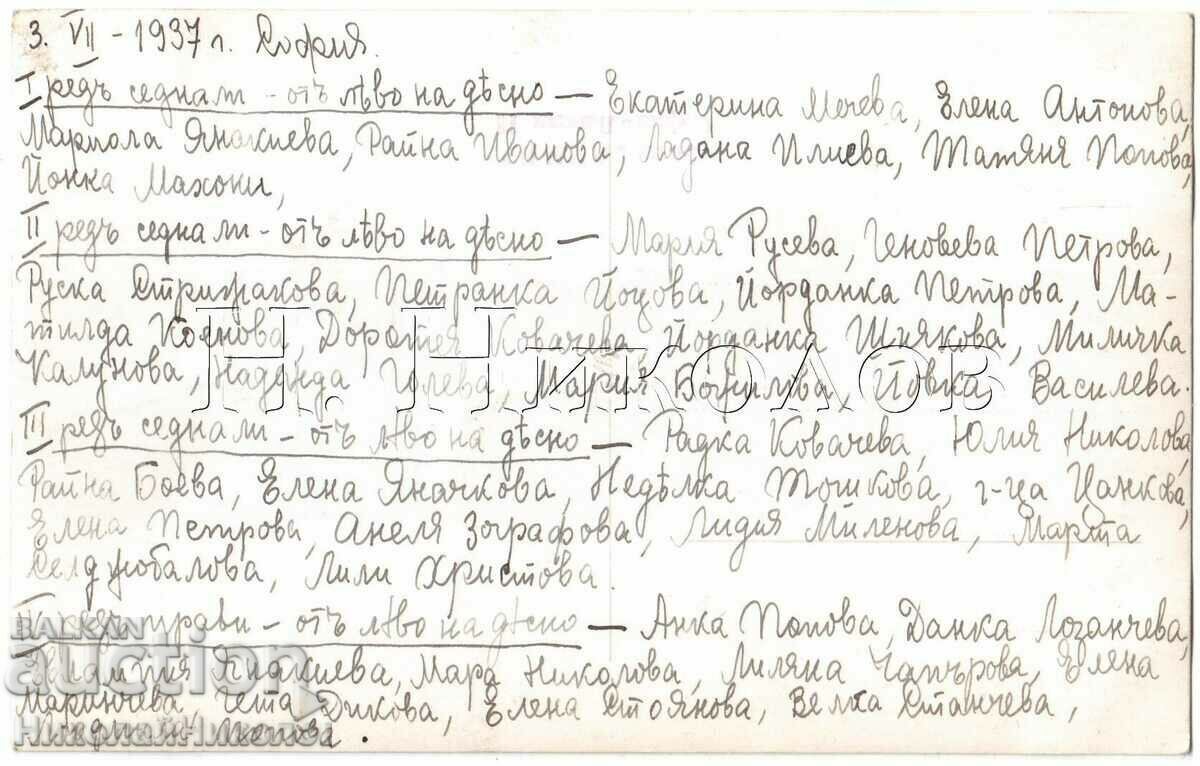 3. VII - 1937 г. София.
I редъ седнали - отъ лѣво на дѣсно — Екатерина Мечева, Елена Антонова,
Мариола Янакиева, Райна Иванова, Ладана Илиева, Татяня Попова,
Йонка Махони,
II редъ седнали - отъ лѣво на дѣсно — Мария Русева, Геновева Петрова,
Руска Стрижакова, Петранка Йоцова, Йорданка Петрова, Ма-
тилда Коянова, Доротея Ковачева, Йорданка Шнякова, Миличка
Калунова, Надежда Мария Йовка Василева.
III редъ седнали - отъ лѣво на дѣсно — Радка Ковачева, Юлия Николова,
Райна Боева, Елена Яначкова, Недѣлка Тошкова, г-ца Цанкова,
Елена Петрова, Анеля Зографова, Лидия Миленова, Марята
Селджобалова, Лили Христова.
IV редъ прави - отъ лѣво на дѣсно — Анка Попова, Данка Лозанчева,
Мара Николова, Лиляна Чапърова, Елена
Маринчева, Цета Дикова, Елена Стоянова, Велка Станчева,
Н. Николов
BALKAN
auction